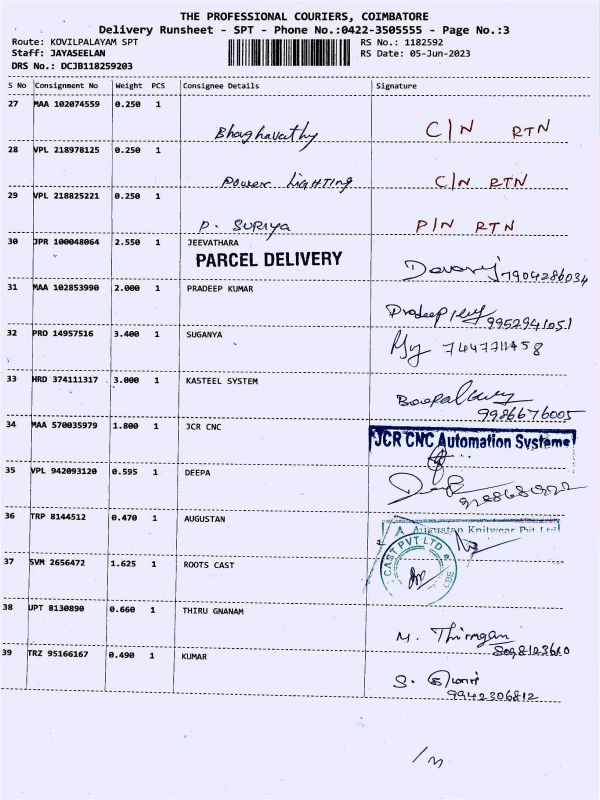 THE PROFESSIONAL COURIERS, COIMBATORE
Delivery Runsheet - SPT - Phone No.:0422-3505555 - Page No.:3
Route: KOVILPALAYAM SPT RS No.: 1182592
Staff: JAYASEELAN RS Date: 05-Jun-2023
DRS No.: DCJB118259203
S No Consignment No Weight PCS Consignee Details Signature
27 MAA 102074559 0.250 1
Bhaghavathy C/N RTN
28 VPL 218978125 0.250 1
Power LIGHTING C/N RTN
29 VPL 218825221 0.250 1
P. SURIYA P/N RTN
30 JPR 100048064 2.550 1 JEEVATHARA
PARCEL DELIVERY
7904286034
31 MAA 102853990 2.000 1 PRADEEP KUMAR
Pradeep 9952941051
32 PRO 14957516 3.400 1 SUGANYA
7447711458
33 HRD 374111317 3.000 1 KASTEEL SYSTEM
9986676005
34 MAA 570035979 1.800 1 JCR CNC
JCR CNC Automation Systems
35 VPL 942093120 0.595 1 DEEPA
36 TRP 8144512 0.470 1 AUGUSTAN
A Augustan Knitwear Pvt Ltd
37 SVM 2656472 1.625 1 ROOTS CAST
CAST PVT LTD CBE
38 UPT 8130890 0.660 1 THIRU GNANAM
M. Thirugnan
39 TRZ 95166167 0.490 1 KUMAR
S. குமார்
9942306812